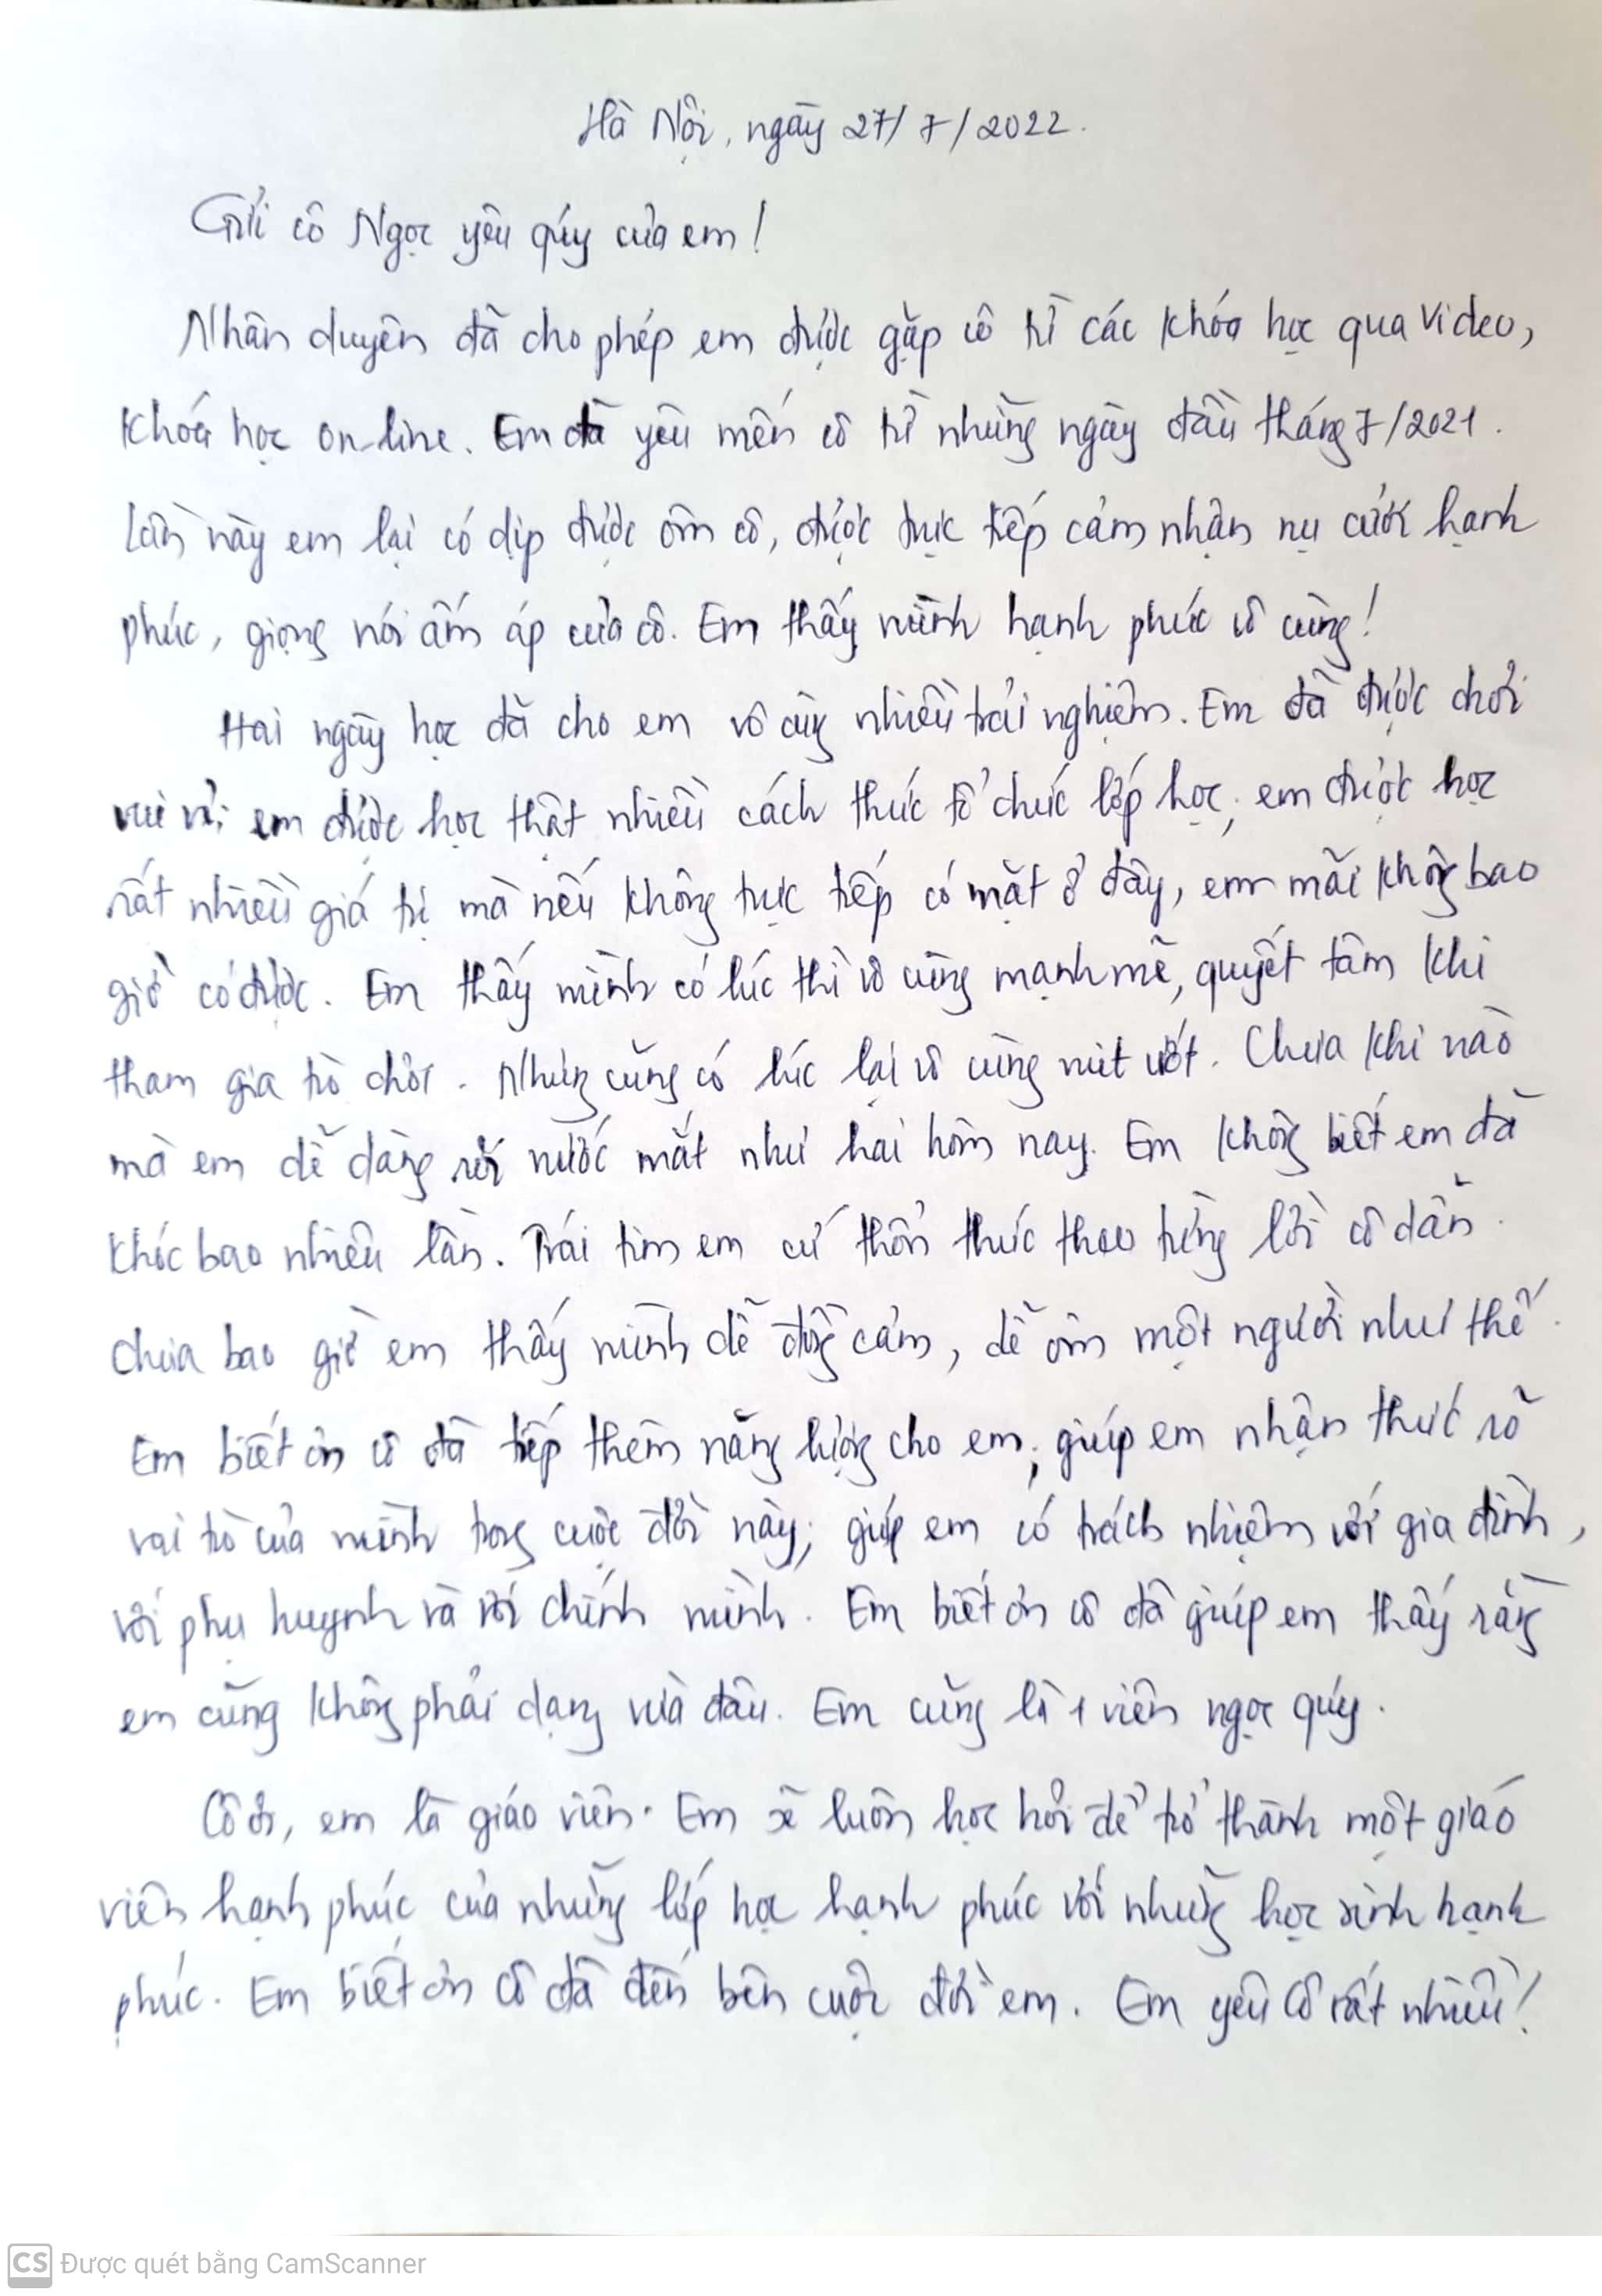 Hà Nội, ngày 27/7/2022.
Gửi cô Ngọc yêu quý của em!
Nhân duyên đã cho phép em được gặp cô từ các khóa học qua Video,
khóa học on-line. Em đã yêu mến cô từ những ngày đầu tháng 7/2021.
Lần này em lại có dịp được ôm cô, được trực tiếp cảm nhận nụ cười hạnh
phúc, giọng nói ấm áp của cô. Em thấy mình hạnh phúc vô cùng!
Hai ngày học đã cho em vô cùng nhiều trải nghiệm. Em đã được chơi
vui vẻ; em được học thật nhiều cách thức tổ chức lớp học; em được học
rất nhiều giá trị mà nếu không trực tiếp có mặt ở đây, em mãi không bao
giờ có được. Em thấy mình có lúc thì vô cùng mạnh mẽ, quyết tâm khi
tham gia trò chơi. Nhưng cũng có lúc lại vô cùng mít ướt. Chưa khi nào
mà em dễ dàng rơi nước mắt như hai hôm nay. Em không biết em đã
khóc bao nhiêu lần. Trái tim em cứ thổn thức theo từng lời cô dẫn.
Chưa bao giờ em thấy mình dễ đồng cảm, dễ ôm một người như thế.
Em biết ơn cô đã tiếp thêm năng lượng cho em; giúp em nhận thức rõ
vai trò của mình trong cuộc đời này; giúp em có trách nhiệm với gia đình,
với phụ huynh và với chính mình. Em biết ơn cô đã giúp em thấy rằng
em cũng không phải dạng vừa đâu. Em cũng là 1 viên ngọc quý.
Cô ơi, em là giáo viên. Em sẽ luôn học hỏi để trở thành một giáo
viên hạnh phúc của những lớp học hạnh phúc với những học sinh hạnh
phúc. Em biết ơn Cô đã đến bên cuộc đời em. Em yêu Cô rất nhiều!
CS Được quét bằng CamScanner